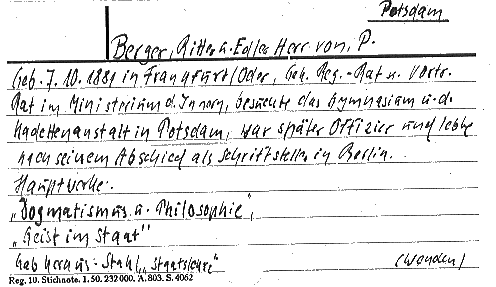 Potsdam
Berger, Ritter u. Edler Herr von, P.
Geb. 7. 10. 1881 in Frankfurt/Oder, Geh. Reg.-Rat u. Vortr.
Rat im Ministerium d. Innern, besuchte das Gymnasium u. d.
Kadettenanstalt in Potsdam, war später Offizier und lebte
nach seinem Abschied als Schriftsteller in Berlin.
Hauptwerke:
„Dogmatismus u. Philosophie",
„Geist im Staat"
Gab heraus: Stahl, „Staatslehre"
(Wenden)
Reg. 10. Stichnote. 1. 50. 232000. A. 803. S. 4062